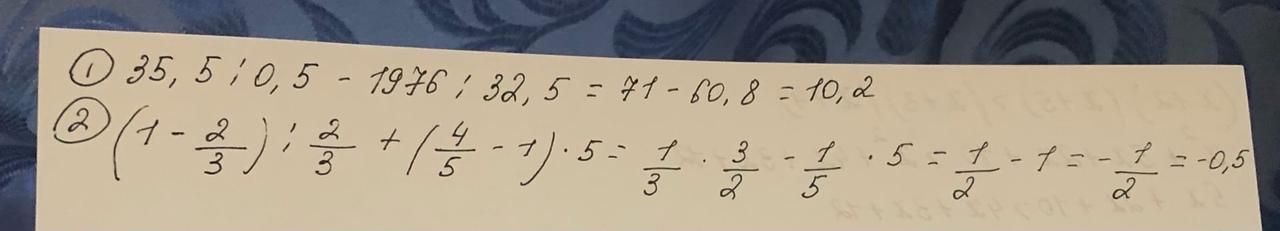 ① 35,5 : 0,5 - 1976 : 32,5 = 71 - 60,8 = 10,2
② (1 - 2/3) : 2/3 + (4/5 - 1) · 5 = 1/3 · 3/2 - 1/5 · 5 = 1/2 - 1 = - 1/2 = -0,5